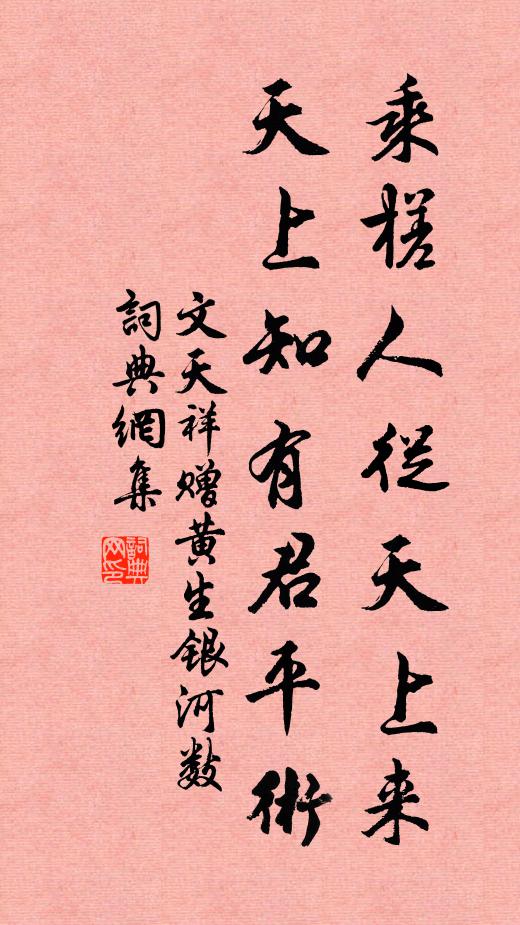 乘槎人從天上来
天上知有君平術
文天祥赠黄生銀河数
詞典網集
詞典网印